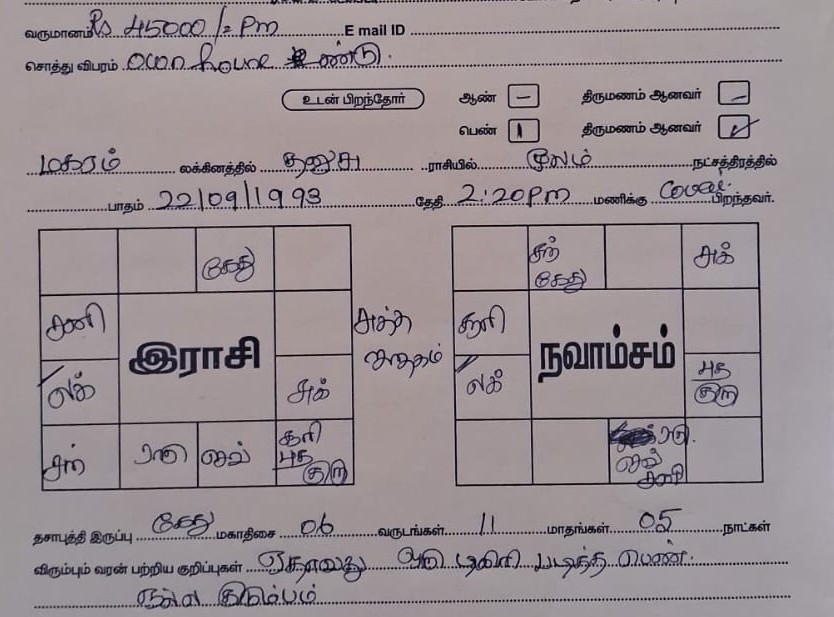 வருமானம் Rs 45000/= Pm E mail ID
சொத்து விபரம் own house உண்டு.
உடன் பிறந்தோர் ஆண் – திருமணம் ஆனவர் –
பெண் 1 திருமணம் ஆனவர் ✓
மகரம் லக்கினத்தில் தனுசு ராசியில் மூலம் நட்சத்திரத்தில்
பாதம் 22/09/1993 தேதி 2:20pm மணிக்கு Covai. பிறந்தவர்.
கேது
சனி
இராசி
லக்
சுக்
சந்
ராகு
செவ்
சூரி
புத
குரு
சந்
கேது
சுக்
சூரி
நவாம்சம்
லக்
புத
குரு
ராகு
செவ்
சனி
தசாபுத்தி இருப்பு கேது மகாதிசை 06 வருடங்கள் 11 மாதங்கள் 05 நாட்கள்
விரும்பும் வரன் பற்றிய குறிப்புகள் ஏதாவது ஒரு டிகிரி படித்த பெண்.
நல்ல குடும்பம்